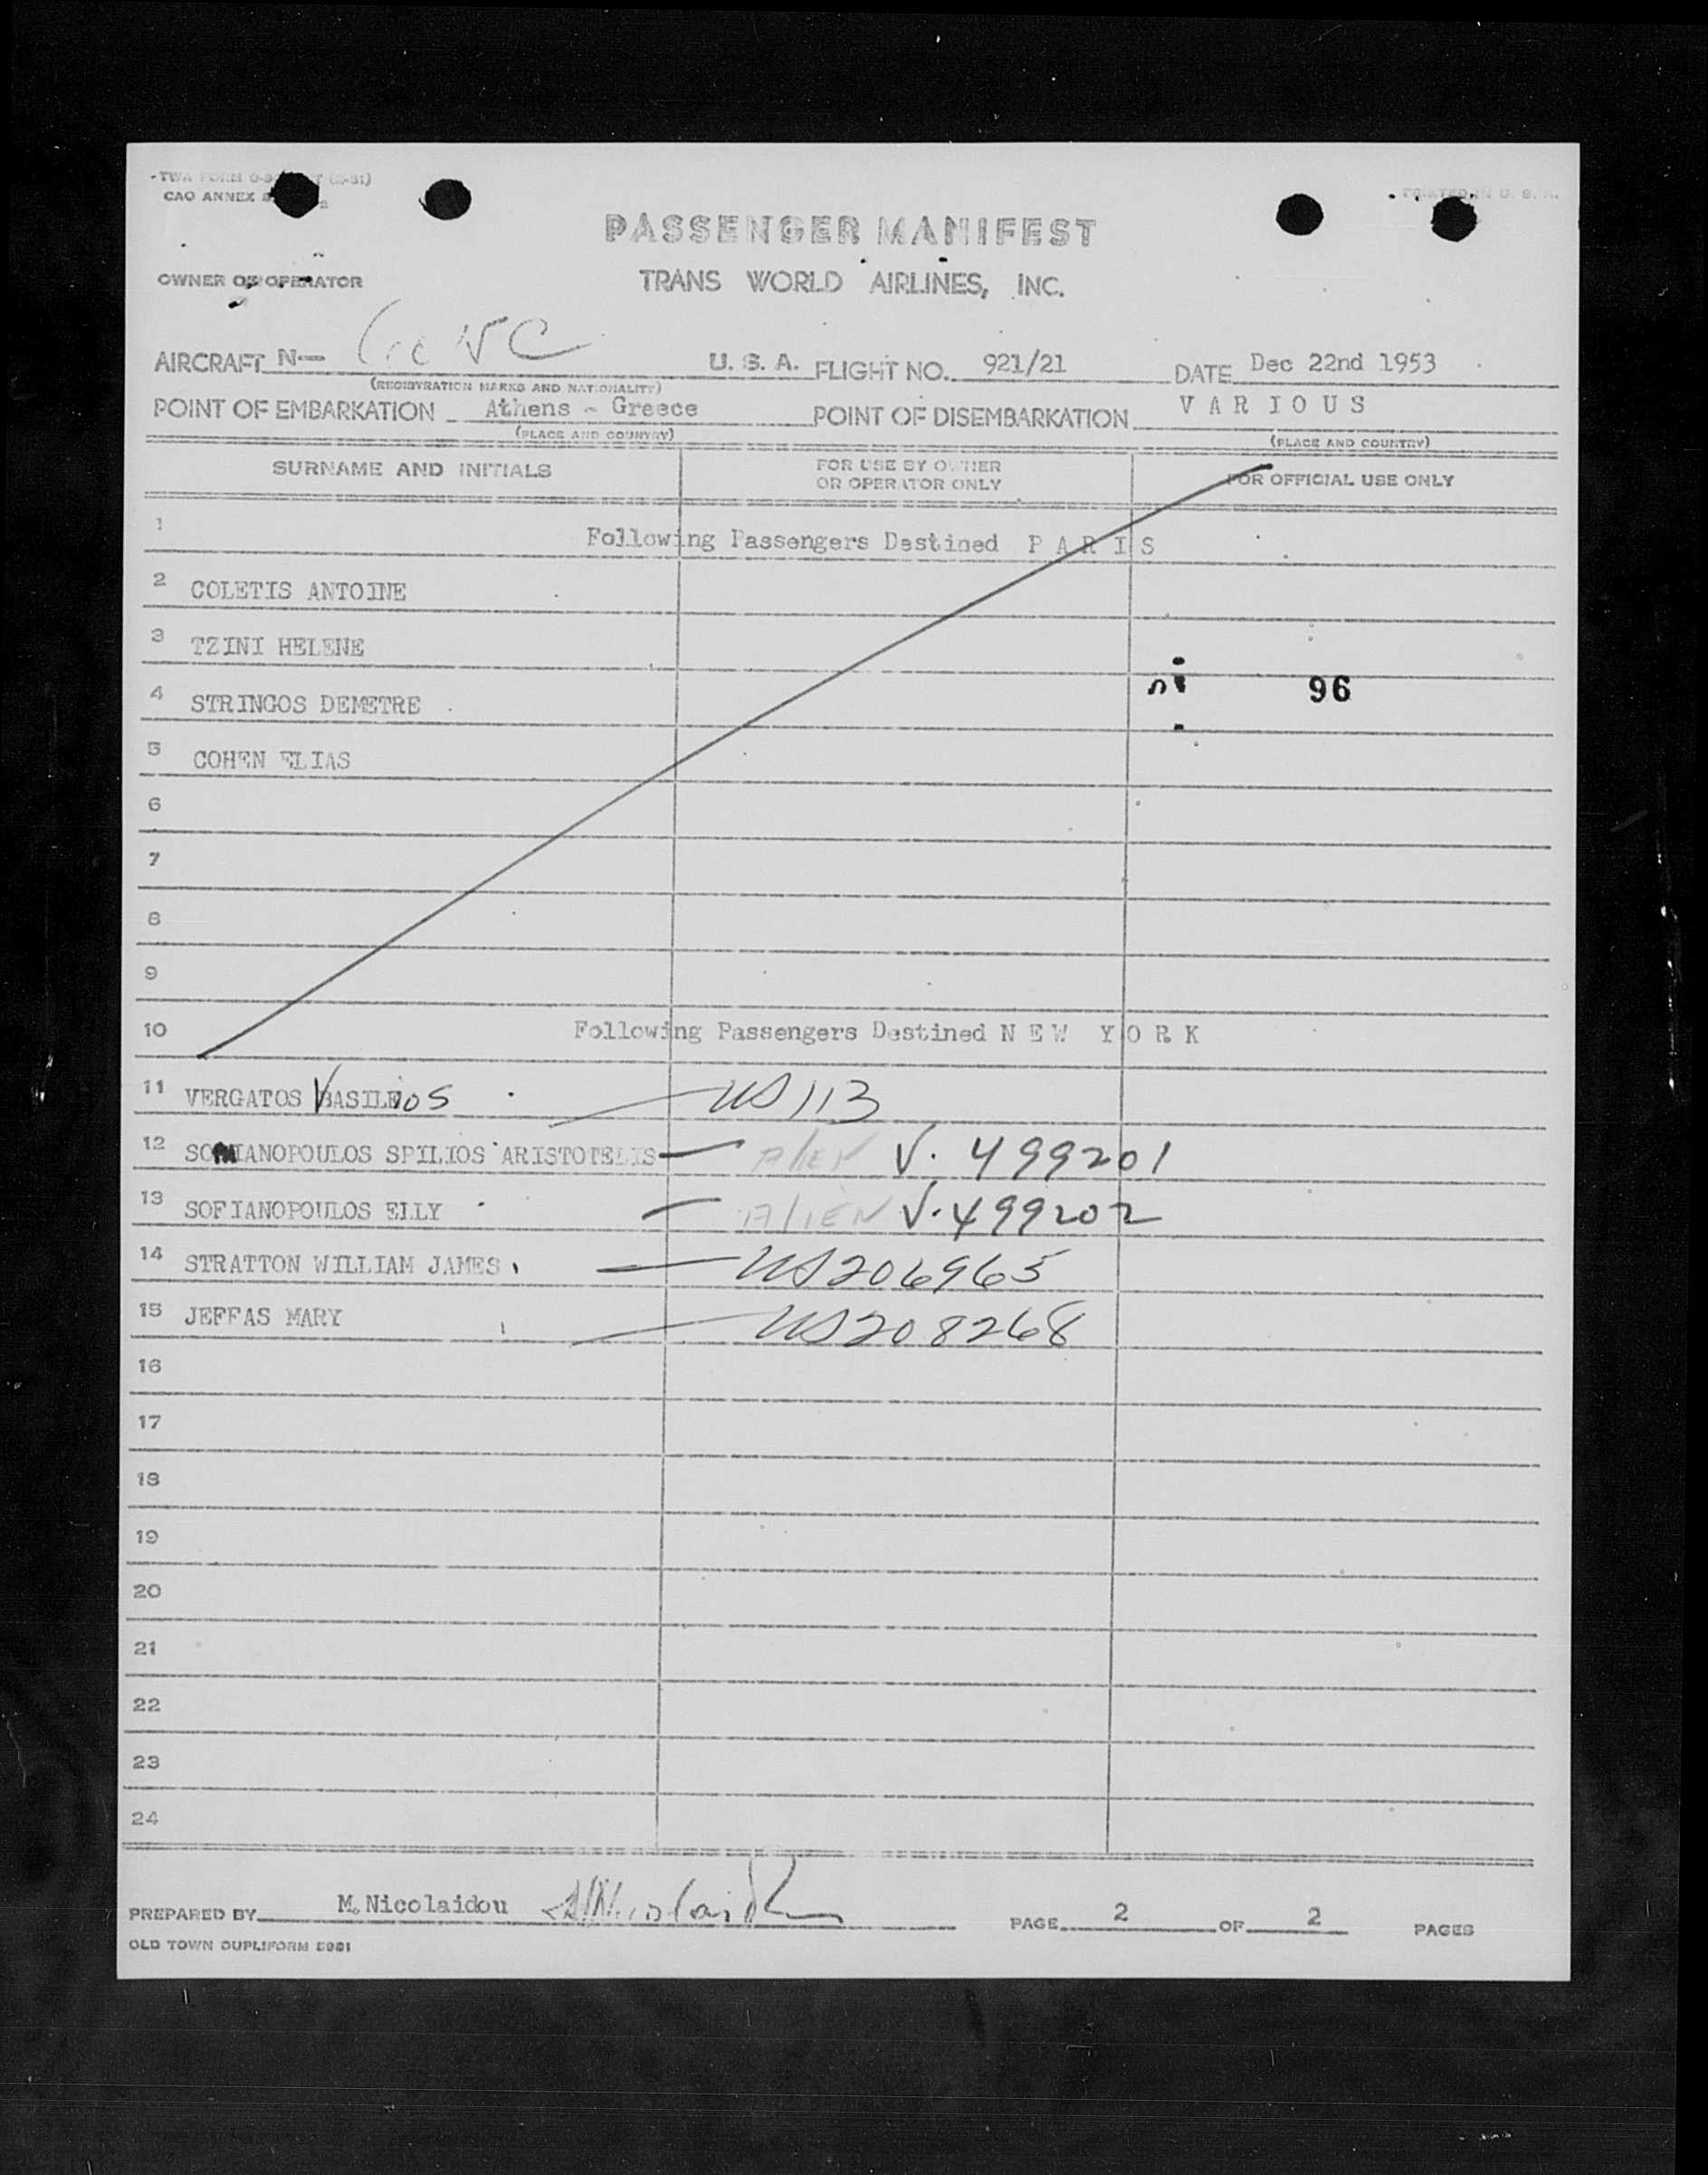 CAO ANNEX
PRINTED IN U. S. A.
PASSENGER MANIFEST
OWNER OR OPERATOR
TRANS WORLD AIRLINES, INC.
AIRCRAFT N— U. S. A. FLIGHT NO. 921/21 DATE Dec 22nd 1953
(REGISTRATION MARKS AND NATIONALITY)
POINT OF EMBARKATION Athens - Greece POINT OF DISEMBARKATION VARIOUS
(PLACE AND COUNTRY) (PLACE AND COUNTRY)
SURNAME AND INITIALS FOR USE BY OWNER OR OPERATOR ONLY FOR OFFICIAL USE ONLY
1 Following Passengers Destined PARIS
2 COLETIS ANTOINE
3 TZINI HELENE
4 STRINGOS DEMETRE 96
5 COHEN ELIAS
6
7
8
9
10 Following Passengers Destined NEW YORK
11 VERGATOS VASILIOS US 113
12 SOFIANOPOULOS SPILIOS ARISTOTELIS Alien V. 499201
13 SOFIANOPOULOS ELLY ALIEN V. 499202
14 STRATTON WILLIAM JAMES US 206965
15 JEFFAS MARY US 208268
16
17
18
19
20
21
22
23
24
PREPARED BY M.Nicolaidou PAGE 2 OF 2 PAGES
OLD TOWN DUPLIFORM